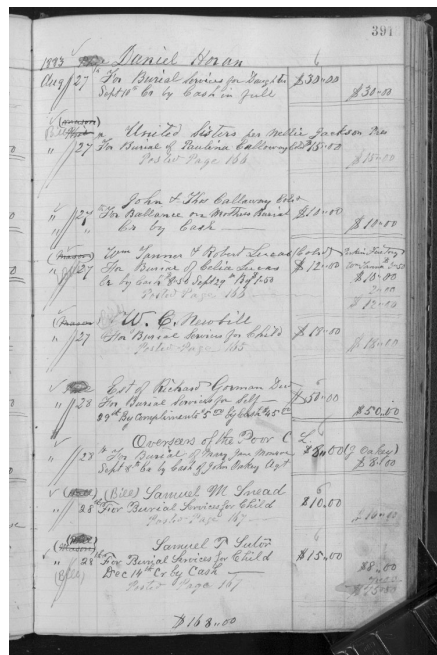 391
1893 Daniel Horan 6
Aug 27 For Burial Services for Daughter $30.00
Sept 10th Cr by Cash in full $30.00
United Sisters per Nellie Jackson Pres
" 27 For Burial of Paulina Calloway Cold $15.00
Posted Page 166 $15.00
John & Thos Callaway Cold
" 27 For Ballance on a Mothers Burial $10.00
" " Cr by Cash $10.00
Wm Turner & Robert Lucas (Cold)
" 27 For Burial of Celia Lucas $12.00
Cr by Cash Sept 29th
Posted Page 166 $12.00
W. C. Newbill
" 27 For Burial Service for Child $18.00
Posted Page 165 $18.00
Est of Richard Gorman Decd 6
" 28 For Burial Services for Self $50.00
29th By Compliments $5.00 by Cash $45.00 $50.00
Overseers of the Poor C L
" 28 For Burial of Mary Jane $8.00 (J Oakey)
Sept 8th Cr by Cash of John Oakey Agt $8.00
(Bill) Samuel M. Snead 6
" 28 For Burial Services for Child $10.00
Posted Page 167 $10.00
Samuel T Sutor 6
" 28 For Burial Services for Child $15.00
(Bill) Dec 14th Cr by Cash $8.00
Posted Page 167
$168.00